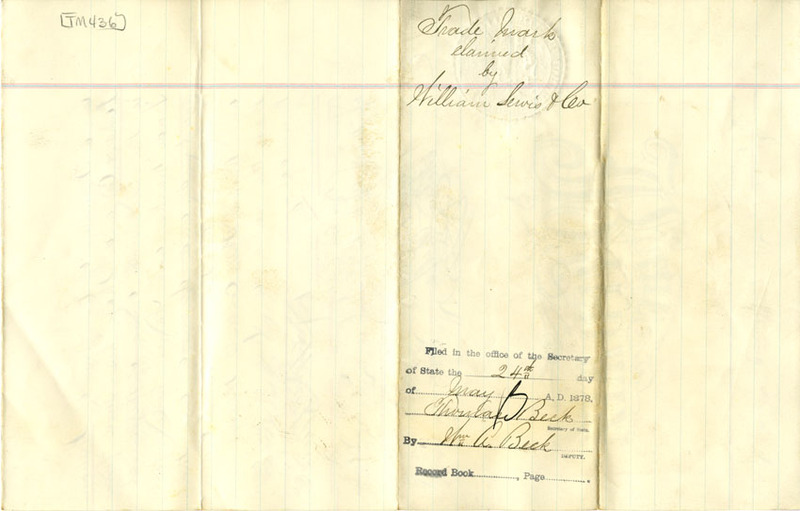 [TM436]
Trade Mark
claimed
by
William Lewis & Co
Filed in the office of the Secretary
of State the 24th day
of May A. D. 1878,
Thomas Beck
Secretary of State.
By Wm A. Beck
DEPUTY.
Record Book , Page .